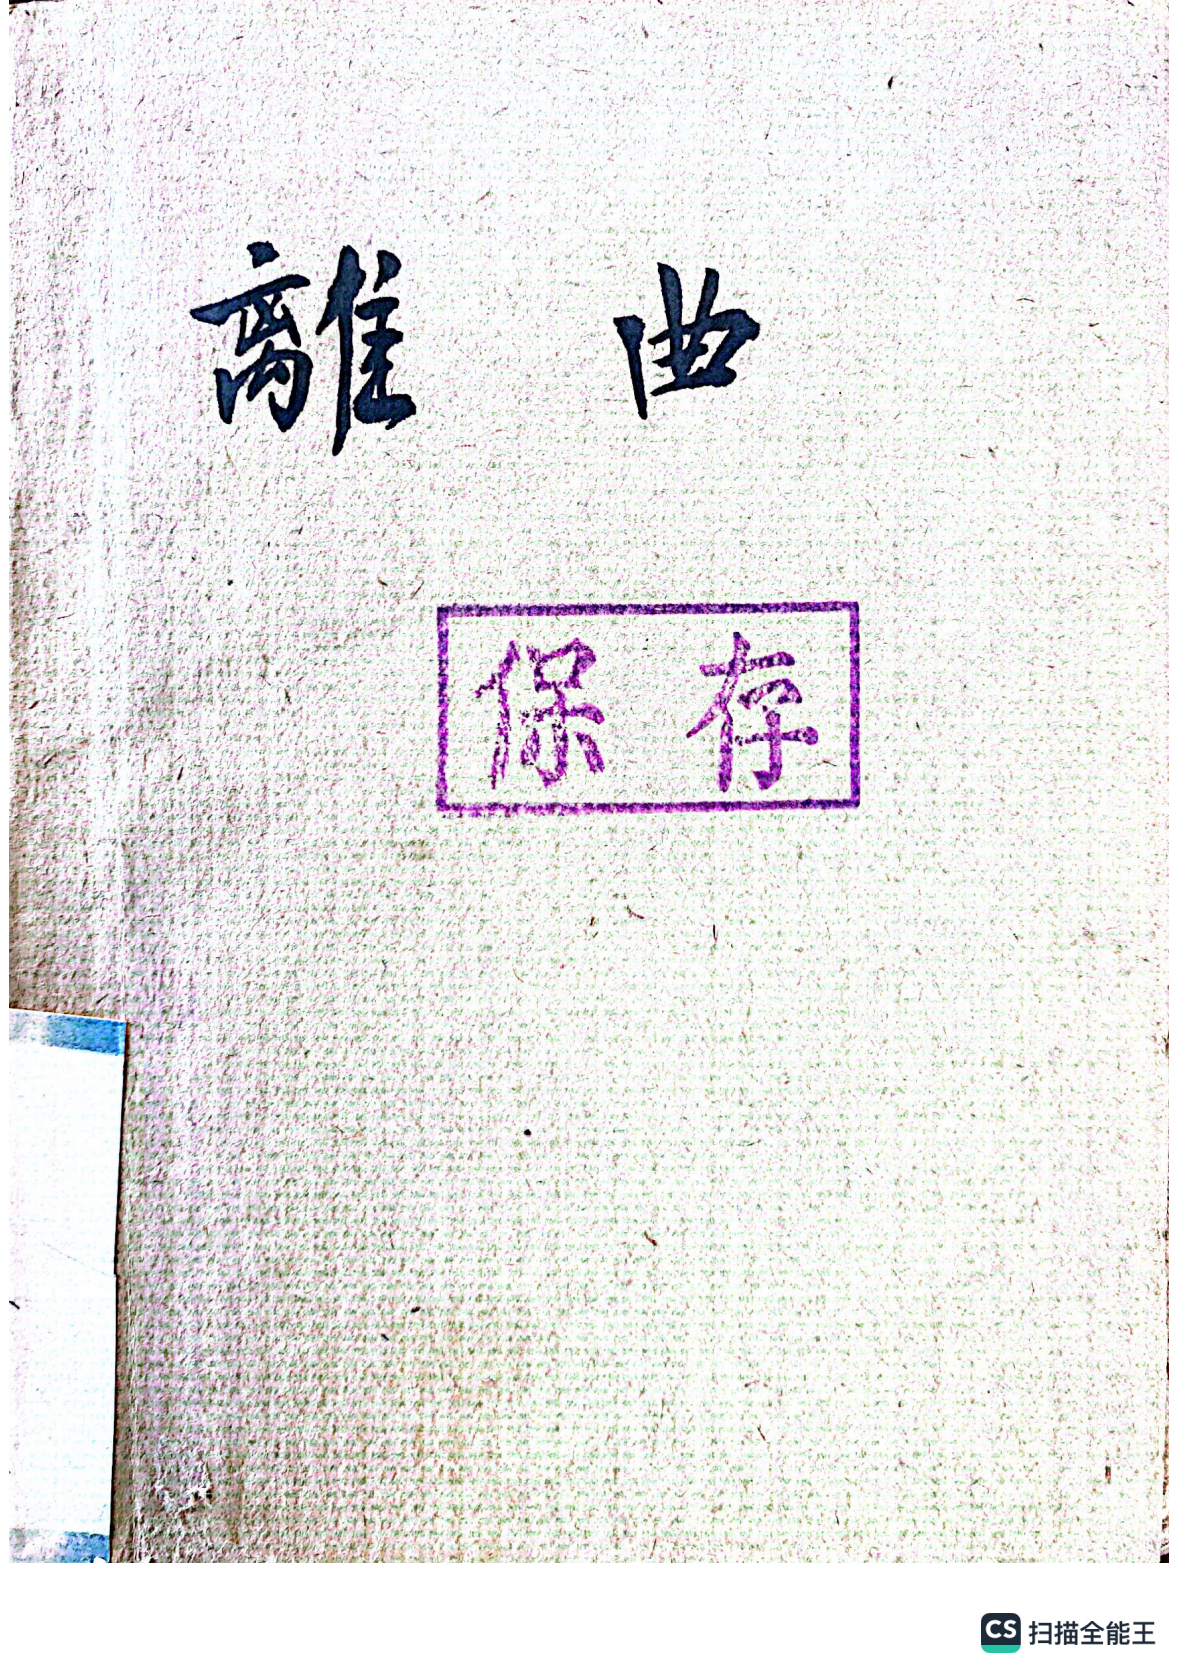 離 曲
保 存
CS 扫描全能王